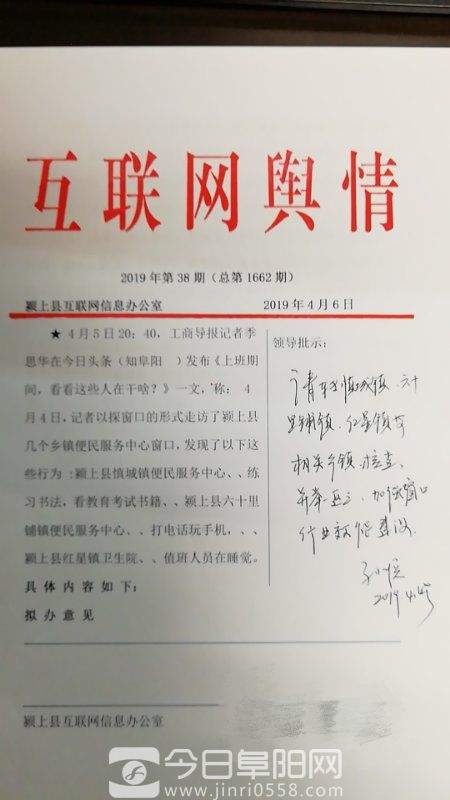 互联网舆情
2019年第38期(总第1662期)
颍上县互联网信息办公室 2019年4月6日
★4月5日20:40,工商导报记者季
思华在今日头条(知阜阳 )发布《上班期
间,看看这些人在干啥?》一文,称: 4
月4日,记者以探窗口的形式走访了颍上县
几个乡镇便民服务中心窗口,发现了以下这
些行为:颍上县慎城镇便民服务中心、、练
习书法,看教育考试书籍、、颍上县六十里
铺镇便民服务中心、、打电话玩手机,、、
颍上县红星镇卫生院、、值班人员在睡觉。
具体内容如下:
拟办意见
领导批示:
请 慎城镇、六十
里铺镇、红星镇等
相关乡镇 检查,
加强窗口
行业效能建设。
2019.4.
颍上县互联网信息办公室
今日阜阳网
www.jinri0558.com